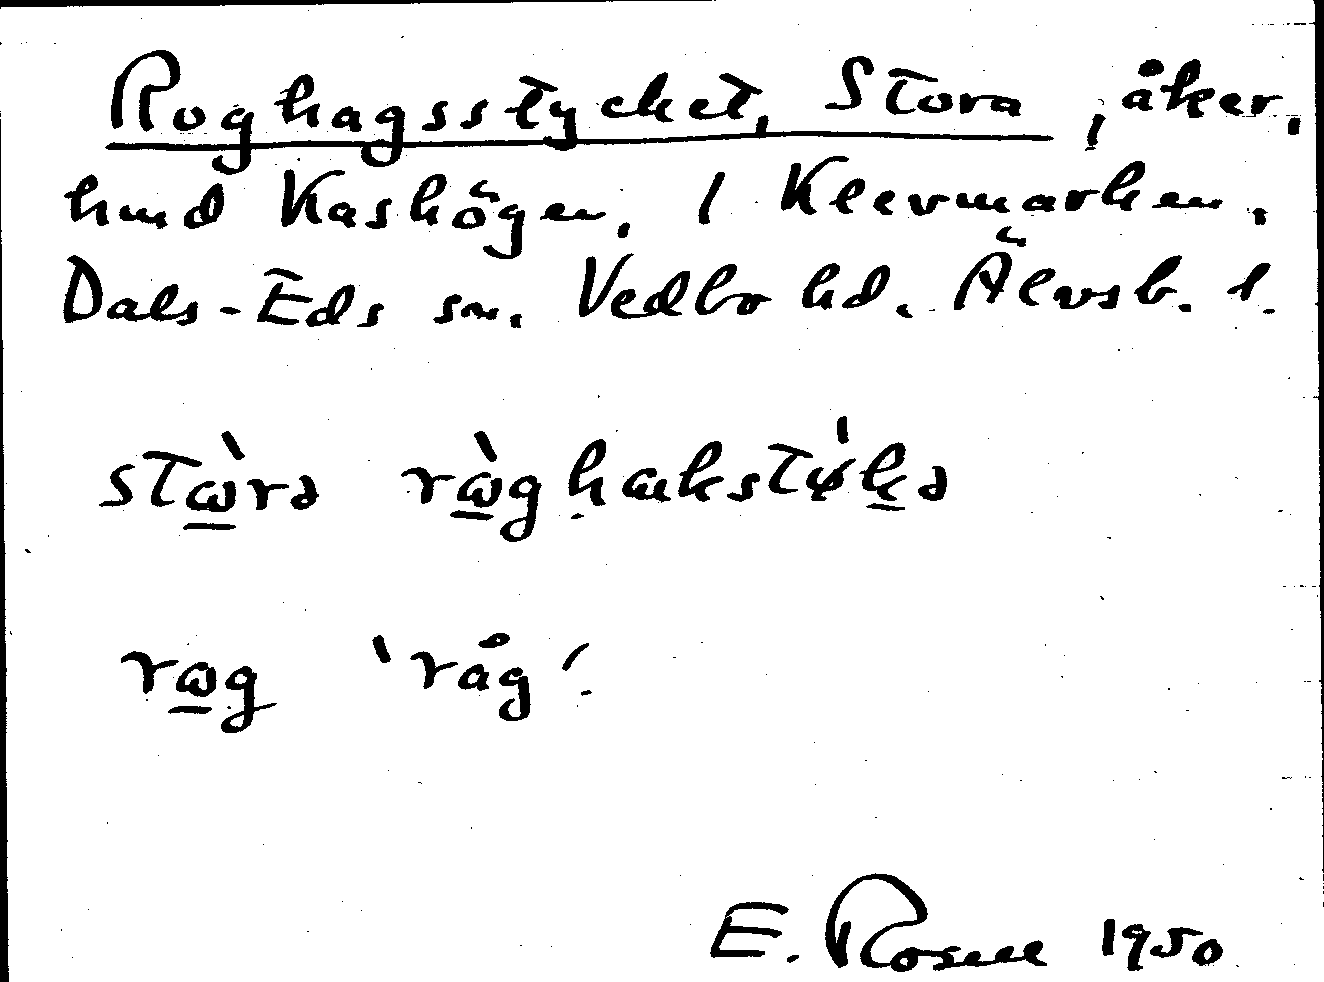 Roghagsstycket, Stora, åker,
hmd Kashögen, 1 Klevmarken,
Dals-Eds sn, Vedbo hd, Älvsb. l.
stɷ̀rə rɷ̀ghakstỳkə
rɷg 'råg'.
E. Rosell 1950